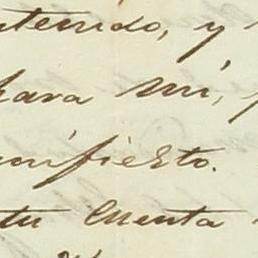 ntenido, y
para mí,
nifiesto.
tu cuenta